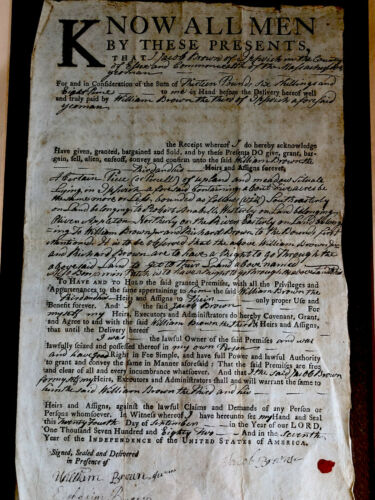 KNOW ALL MEN
BY THESE PRESENTS,
THAT I Jacob Brown of Ipswich in the County
of Essex and Commonwealth of the Massachusetts
yeoman
For and in Consideration of the Sum of Thirteen Pounds Six Shillings and
Eight Pence to me in Hand before the Delivery hereof well
and truly paid by William Brown the third of Ipswich aforesaid
yeoman
the Receipt whereof I do hereby acknowledge
Have given, granted, bargained and sold, and by these Presents DO give, grant, bar-
gain, sell, alien, enfeoff, convey and confirm unto the said William Brown the
Third and his Heirs and Assigns forever,
A Certain Piece of upland and meadow Situate
Lying in Ipswich aforesaid Containing about five acres be
the same more or Less bounded as follows Southeasterly
on land belonging to Robert Westerly on land belonging
Northerly on the River Easterly on Land belong-
ing To William Brown Junr and Richard Brown to the Bounds first
mentioned. It is to be observed that the above William Brown
and Richard Brown are to have a Right to go through the
above said Land
To HAVE and to HOLD the said granted Premises, with all the Privileges and
Appurtenances to the same appertaining to him the said William Brown the
Third and his Heirs and Assigns to Their only proper Use and
Benefit forever. And I the said Jacob Brown for
myself my Heirs, Executors and Administrators do hereby Covenant, Grant,
and Agree to and with the said William Brown the third Heirs and Assigns,
that until the Delivery hereof
I was the lawful Owner of the said Premises and was
lawfully seized and possessed thereof in my own Right
and have good Right in Fee Simple, and have full Power and lawful Authority
to grant and convey the same in Manner aforesaid: That the said Premises are free
and clear of all and every Incumbrance whatsoever. And I the said Jacob Brown
for myself my Heirs, Executors and Administrators shall and will warrant the same to
him the said William Brown the Third and his
Heirs and Assigns, against the lawful Claims and Demands of any Person or
Persons whomsoever. In Witness whereof I have hereunto set my Hand and Seal
this Twenty Fourth Day of September in the Year of our LORD,
One Thousand Seven Hundred and Eighty two And in the Seventh
Year of the INDEPENDENCE of the UNITED STATES OF AMERICA.
Signed, Sealed and Delivered
in Presence of
Jacob Brown
William Brown